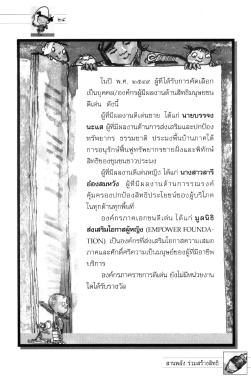 ๒๘
ในปี พ.ศ. ๒๕๔๙ ผู้ที่ได้รับการคัดเลือก
เป็นบุคคล/องค์กรผู้มีผลงานด้านสิทธิมนุษยชน
ดีเด่น ดังนี้
ผู้ที่มีผลงานดีเด่นชาย ได้แก่ นายบรรจง
นะแส ผู้ที่มีผลงานด้านการส่งเสริมและปกป้อง
ทรัพยากร ธรรมชาติ ประมงพื้นบ้านภาคใต้
การอนุรักษ์ฟื้นฟูทรัพยากรชายฝั่งและพิทักษ์
สิทธิของชุมชนชาวประมง
ผู้ที่มีผลงานดีเด่นหญิง ได้แก่ นางสาวสารี
อ๋องสมหวัง ผู้ที่มีผลงานด้านการรณรงค์
คุ้มครองปกป้องสิทธิประโยชน์ของผู้บริโภค
ในทุกด้านทุกพื้นที่
องค์กรภาคเอกชนดีเด่น ได้แก่ มูลนิธิ
ส่งเสริมโอกาสผู้หญิง (EMPOWER FOUNDA-
TION) เป็นองค์กรที่ส่งเสริมโอกาสความเสมอ
ภาคและศักดิ์ศรีความเป็นมนุษย์ของผู้ที่มีอาชีพ
บริการ
องค์กรภาคราชการดีเด่น ยังไม่มีหน่วยงาน
ใดได้รับรางวัล
สานพลัง ร่วมสร้างสิทธิ